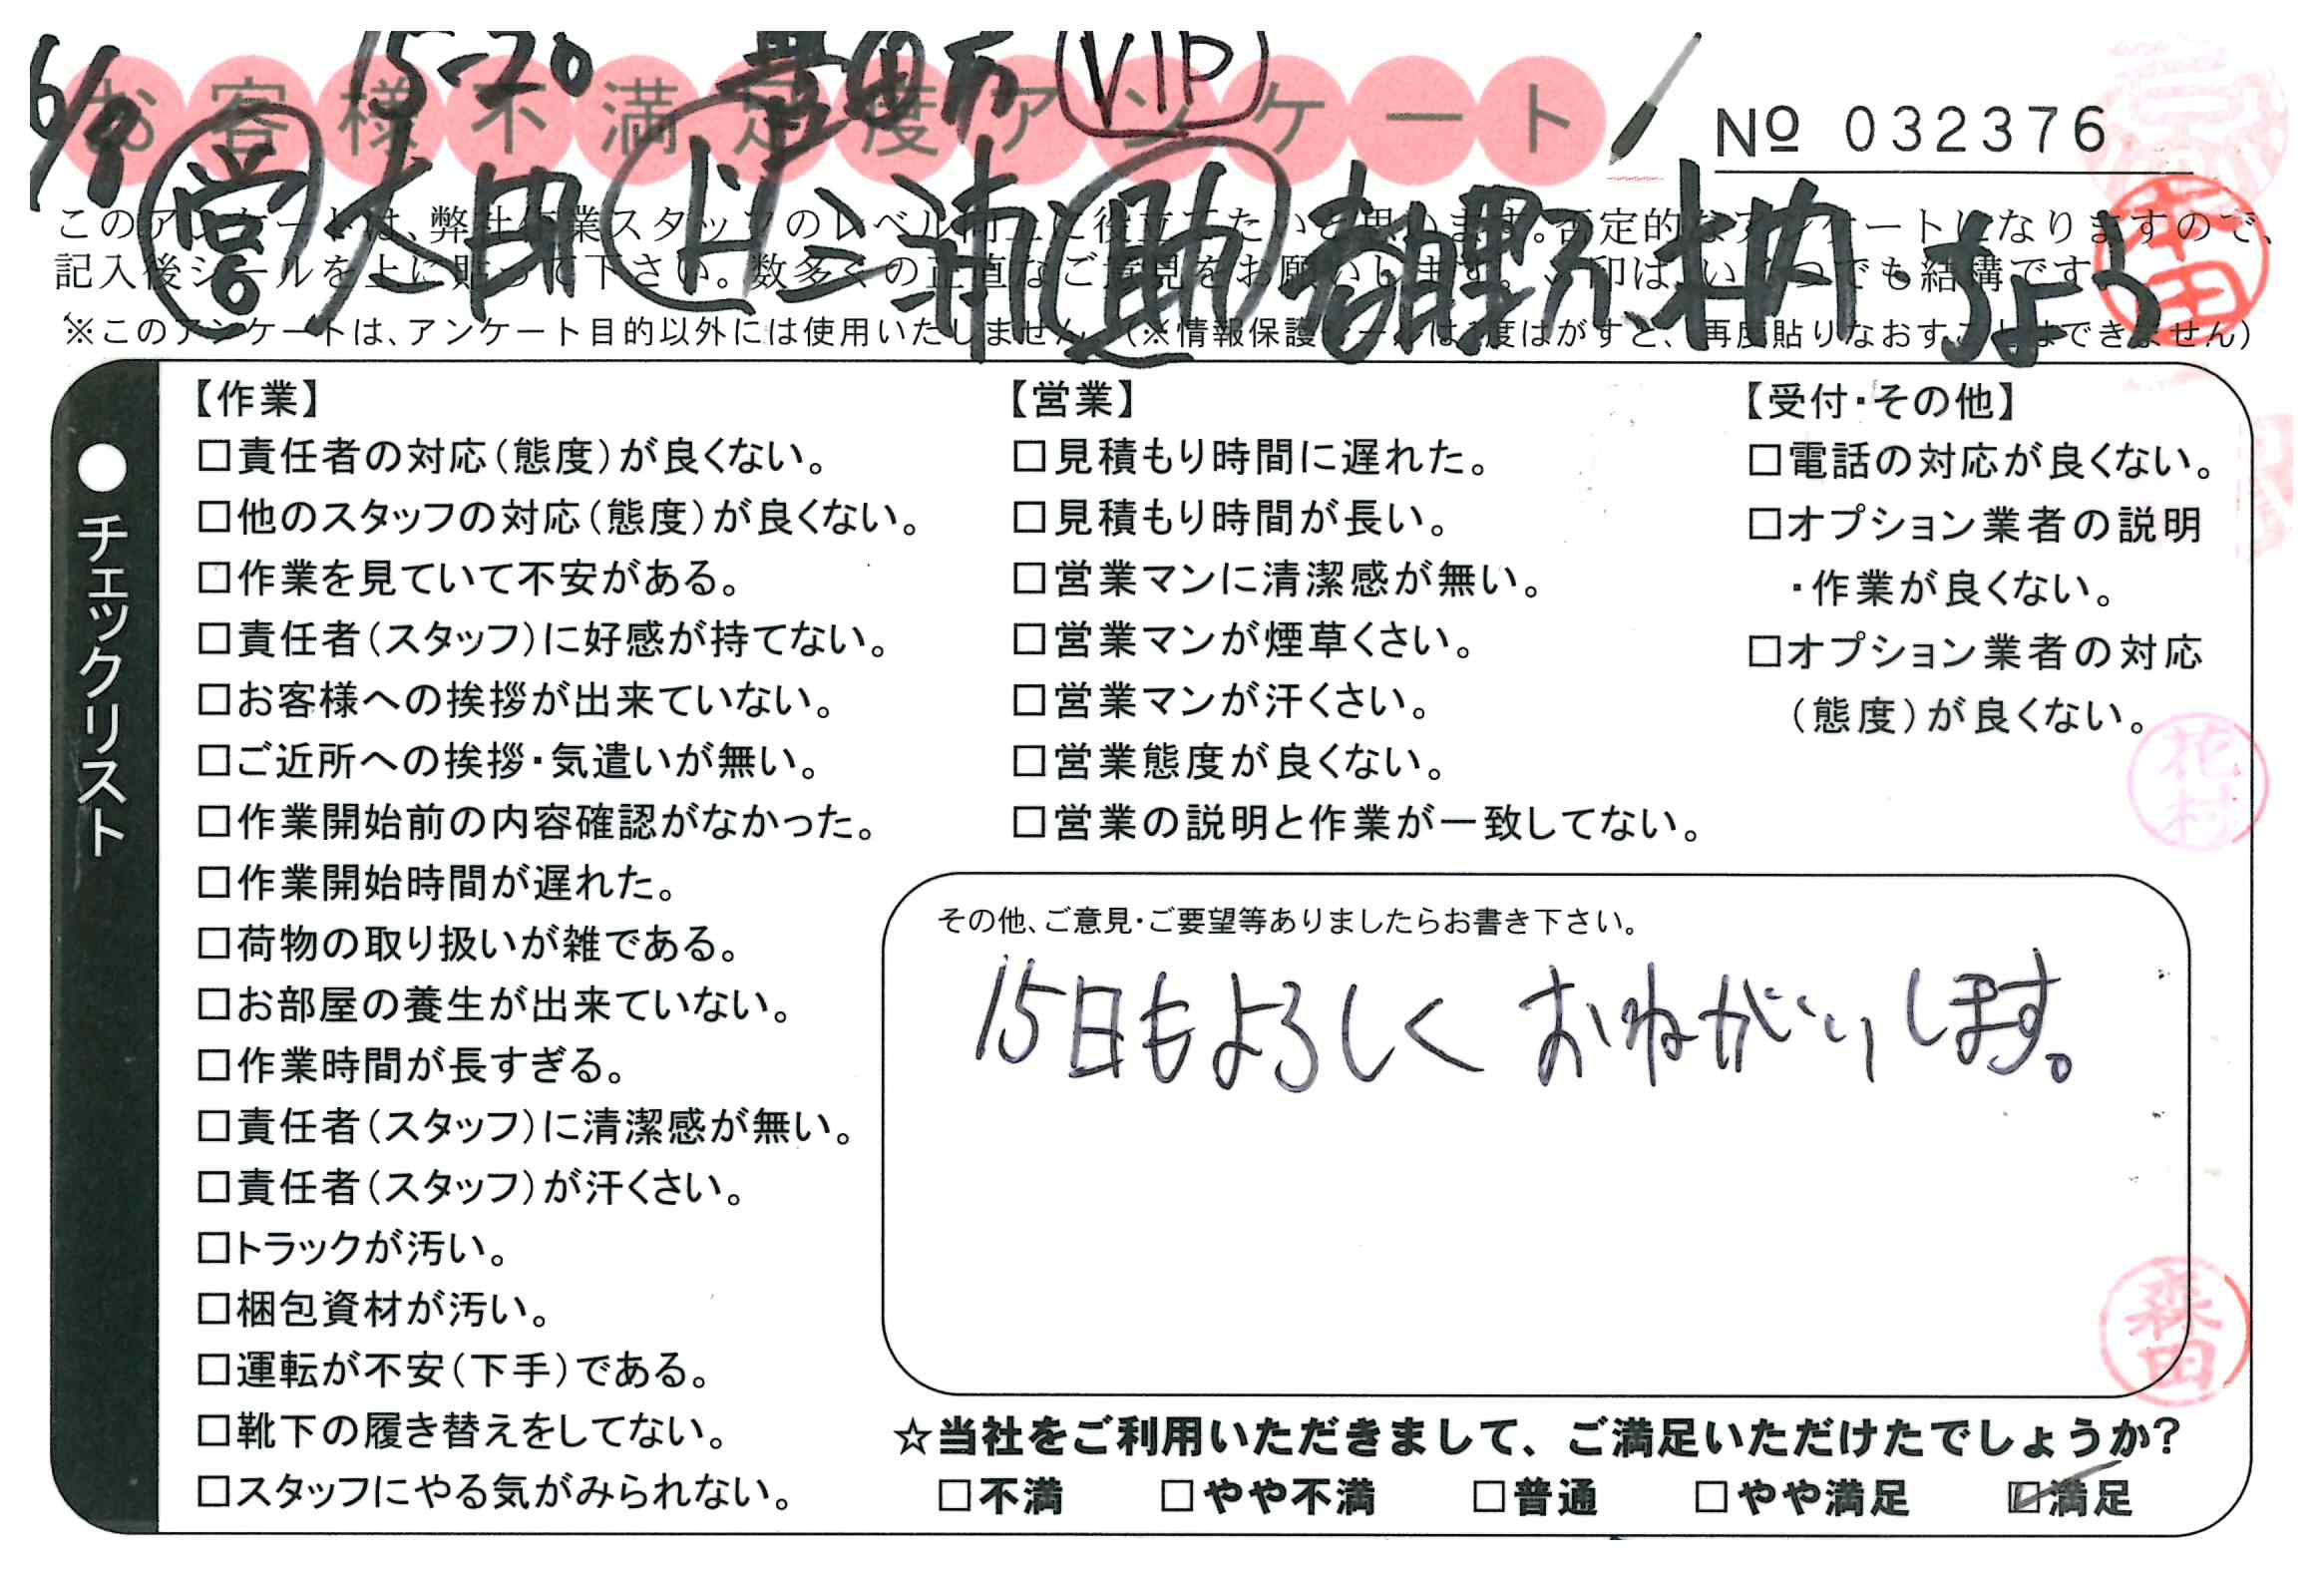 6/9 15-20 VIP
お客様不満足度アンケート
No 032376
営 太田 三浦 助 朝野、木内、
本田
このアンケートは、弊社作業スタッフのレベル向上に役立てたいと思います。否定的なアンケートになりますので、
記入後シールを上に貼って下さい。数多くの正直なご意見をお願いします。レ印は、いくつでも結構です。
※このアンケートは、アンケート目的以外には使用いたしません。(※情報保護シールは1度はがすと、再度貼りなおすことはできません)
●チェックリスト
【作業】
□責任者の対応(態度)が良くない。
□他のスタッフの対応(態度)が良くない。
□作業を見ていて不安がある。
□責任者(スタッフ)に好感が持てない。
□お客様への挨拶が出来ていない。
□ご近所への挨拶・気遣いが無い。
□作業開始前の内容確認がなかった。
□作業開始時間が遅れた。
□荷物の取り扱いが雑である。
□お部屋の養生が出来ていない。
□作業時間が長すぎる。
□責任者(スタッフ)に清潔感が無い。
□責任者(スタッフ)が汗くさい。
□トラックが汚い。
□梱包資材が汚い。
□運転が不安(下手)である。
□靴下の履き替えをしてない。
□スタッフにやる気がみられない。
【営業】
□見積もり時間に遅れた。
□見積もり時間が長い。
□営業マンに清潔感が無い。
□営業マンが煙草くさい。
□営業マンが汗くさい。
□営業態度が良くない。
□営業の説明と作業が一致してない。
【受付・その他】
□電話の対応が良くない。
□オプション業者の説明
・作業が良くない。
□オプション業者の対応
(態度)が良くない。
花村
その他、ご意見・ご要望等ありましたらお書き下さい。
15日もよろしく おねがいします。
森田
☆当社をご利用いただきまして、ご満足いただけたでしょうか?
□不満 □やや不満 □普通 □やや満足 ☑満足